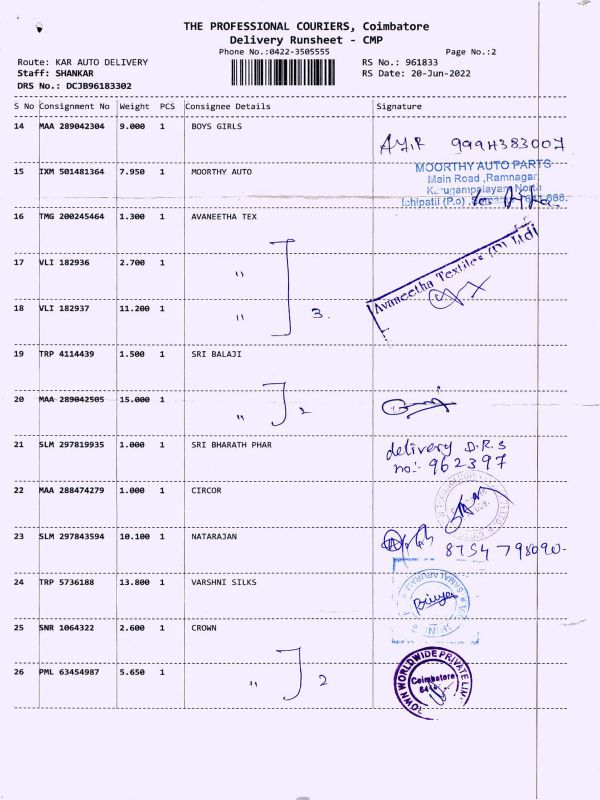 THE PROFESSIONAL COURIERS, Coimbatore
Delivery Runsheet - CMP
Phone No.:0422-3505555
Page No.:2
Route: KAR AUTO DELIVERY
RS No.: 961833
Staff: SHANKAR
RS Date: 20-Jun-2022
DRS No.: DCJB96183302
S No Consignment No Weight PCS Consignee Details Signature
14 MAA 289042304 9.000 1 BOYS GIRLS
15 IXM 501481364 7.950 1 MOORTHY AUTO
MOORTHY AUTO PARTS
Main Road ,Ramnagar,
North
Ichipatti (P.o)
16 TMG 200245464 1.300 1 AVANEETHA TEX
Avaneetha Textiles (P) Ltd
17 VLI 182936 2.700 1 "
18 VLI 182937 11.200 1 " 3.
19 TRP 4114439 1.500 1 SRI BALAJI
20 MAA 289042505 15.000 1 " 2
21 SLM 297819935 1.000 1 SRI BHARATH PHAR
delivery D.R.S
no:- 962397
22 MAA 288474279 1.000 1 CIRCOR
23 SLM 297843594 10.100 1 NATARAJAN
8754798090-
24 TRP 5736188 13.800 1 VARSHNI SILKS
25 SNR 1064322 2.600 1 CROWN
26 PML 63454987 5.650 1 " 2
TOWN WORLDWIDE PRIVATE LIMI
Coimbatore